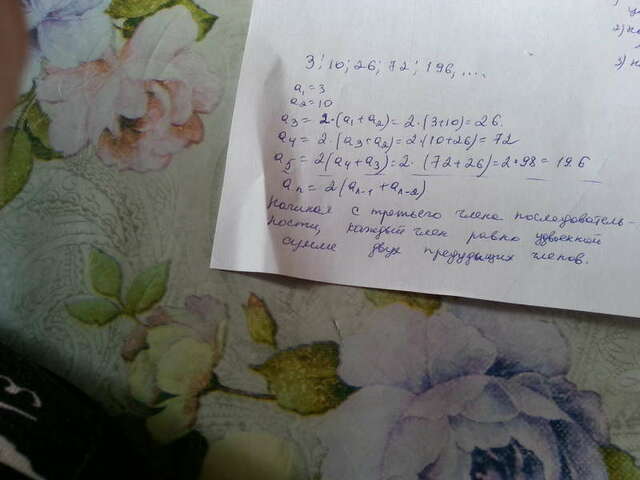 3; 10; 26; 72; 196, ....
a₁ = 3
a₂ = 10
a₃ = 2·(a₁+a₂) = 2·(3+10) = 26
a₄ = 2·(a₃+a₂) = 2·(10+26) = 72
a₅ = 2(a₄+a₃) = 2·(72+26) = 2·98 = 196
aₙ = 2(aₙ₋₁ + aₙ₋₂)
Начиная с третьего члена последователь-
ности, каждый член равно удвоенной
сумме двух предудыщих членов.
2) на
3) н
13